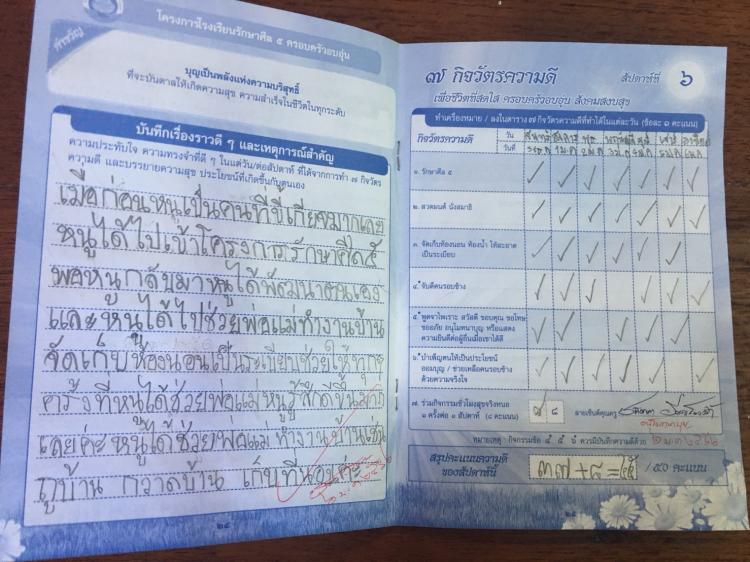 คำขวัญ
โครงการโรงเรียนรักษาศีล ๕ ครอบครัวอบอุ่น
บุญเป็นพลังแห่งความบริสุทธิ์
ที่จะบันดาลให้เกิดความสุข ความสำเร็จในชีวิตในทุกระดับ
บันทึกเรื่องราวดี ๆ และเหตุการณ์สำคัญ
ความประทับใจ ความทรงจำที่ดี ๆ ในแต่วัน/ต่อสัปดาห์ ที่ได้จากการทำ ๗ กิจวัตร
ความดี และบรรยายความสุข ประโยชน์ที่เกิดขึ้นกับตนเอง
เมื่อก่อนหนูเป็นคนที่ขี้เกียจมากเลย
หนูได้ไปเข้าโครงการรักษาศีล๕
พอหนูกลับมาหนูได้พัฒนาตนเอง
และหนูได้ไปช่วยพ่อแม่ทำงานบ้าน
จัดเก็บห้องนอนเป็นระเบียบช่วยให้ทุกๆ
ครั้งที่หนูได้ช่วยพ่อแม่หนูรู้สึกดีขึ้นมาก
เลยค่ะหนูได้ช่วยพ่อแม่ทำงานบ้านเช่น
ถูบ้าน กวาดบ้าน เก็บที่นอนค่ะ
๒๔
๗ กิจวัตรความดี สัปดาห์ที่ ๖
เพื่อชีวิตที่สดใส ครอบครัวอบอุ่น สังคมสงบสุข
ทำเครื่องหมาย / ลงในตาราง ๗ กิจวัตรความดีที่ทำได้ในแต่ละวัน (ข้อละ ๑ คะแนน)
กิจวัตรความดี วัน จันทร์ อังคาร พุธ พฤหัสบดี ศุกร์ เสาร์ อาทิตย์
วันที่
๑. รักษาศีล ๕
๒. สวดมนต์ นั่งสมาธิ
๓. จัดเก็บห้องนอน ห้องน้ำ ให้สะอาด
เป็นระเบียบ
๔. จับดีคนรอบข้าง
๕. พูดจาไพเราะ สวัสดี ขอบคุณ ขอโทษ
ขออภัย อนุโมทนาบุญ หรือแสดง
ความยินดีต่อผู้อื่นเมื่อเขาได้ดี
๖. บำเพ็ญตนให้เป็นประโยชน์
ออมบุญ / ช่วยเหลือคนรอบข้าง
ด้วยความจริงใจ
๗. ร่วมกิจกรรมชั่วโมงสุจริงหนอ
๑ ครั้งต่อ ๑ สัปดาห์ (๘ คะแนน) ๘ ลายเซ็นต์คุณครู
อนุโมทนาบุญ
หมายเหตุ กิจกรรมข้อ ๔ ๕ ๖ ควรมีบันทึกความดีด้วย
สรุปคะแนนความดี
ของสัปดาห์นี้ ๓๗+๘=๔๕ / ๕๐ คะแนน
๒๕